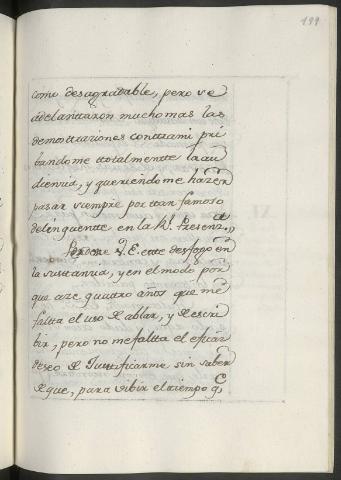 199
como desagradable, pero se
adelantaron mucho mas las
demostraziones contra mi pri
bandome totalmentte la au
dienzia, y queriendome hazer
pasar siempre por tan famoso
delinquentte en la Rl. Presenza,
Perdone V. E. este desfogo en
la sustanzia, y en el modo por
que aze quatro años que me
faltta el uso de ablar, y de escri
bir, pero no me faltta el eficaz
deseo de Justificarme sin saber
de que, para vibir el tiempo q.e